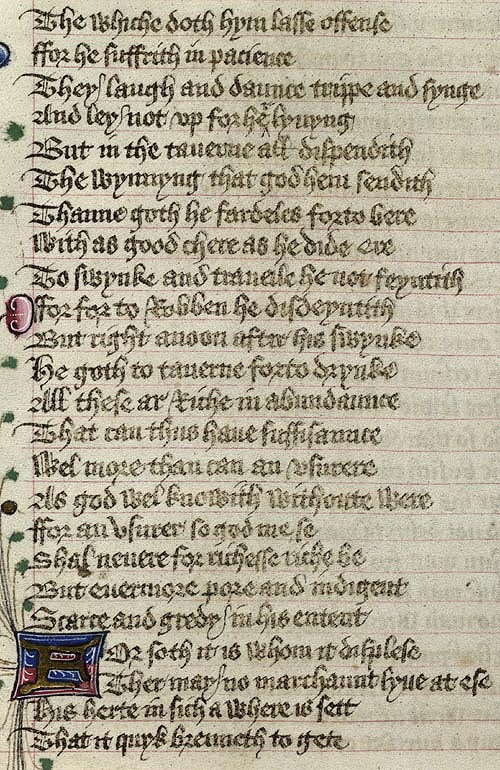 The whiche doth hym lasse offense
ffor he suffrith in pacience
They laugh and daunce trippe and synge
And ley not vp for her lyuyng
But in the tauerne all dispendith
The wynnyng that god hem sendith
Thanne goth he fardeles forto bere
With as good chere as he dide ere
To swynke and traueile he not feyntith
ffor for to Robben he disdeyntith
But right anoon aftir his swynke
He goth to tauerne forto drynke
All these ar Riche in abundaunce
That can thus haue suffisaunce
Wel more than can an vsurere
As god wel knowith withoute were
ffor an vsurer so god me se
Shal neuere for richesse riche be
But euermore pore and indigent
Scarce and gredy in his entent
For soth it is whom it displese
Ther may no marchaunt lyue at ese
His herte in sich a where is sett
That it quyk brenneth to gete